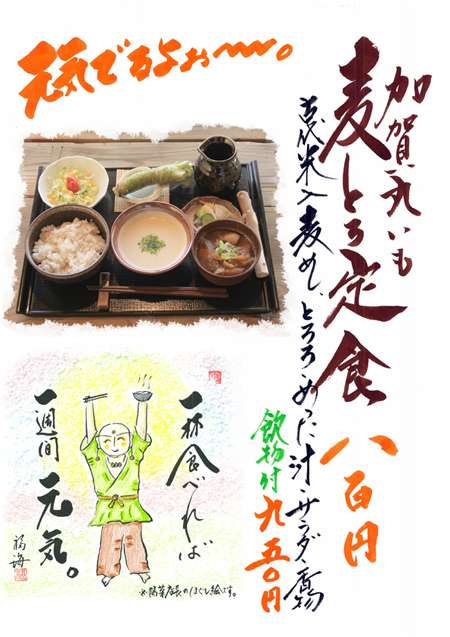 元気でるよぉ〜〜。
加賀丸いも
麦とろ定食 八百円
古代米入麦めし、とろろ、めった汁・サラダ・香物
飲物付 九五〇円
一杯食べれば
一週間 元気。
福海